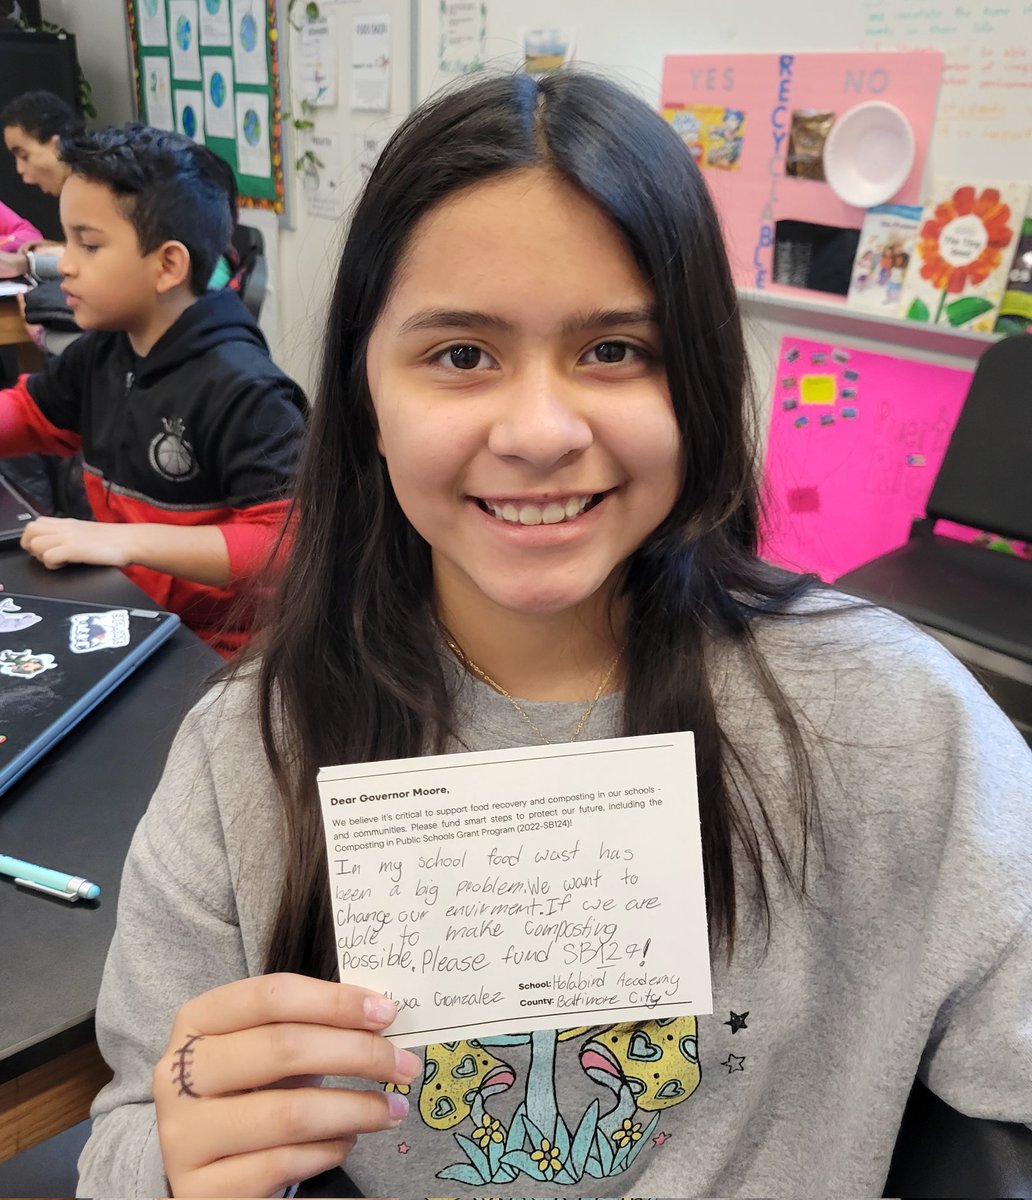 YES
RECYCLABLE
NO
The Tiny
Seed
Dear Governor Moore,
We believe it's critical to support food recovery and composting in our schools -
and communities. Please fund smart steps to protect our future, including the
Composting in Public Schools Grant Program (2022-SB124)!
In my school food wast has
been a big problem.We want to
Change our envirment.If we are
able to make composting
possible. Please fund SB124!
Alexa Gonzalez
School: Holabird Academy
County: Baltimore City